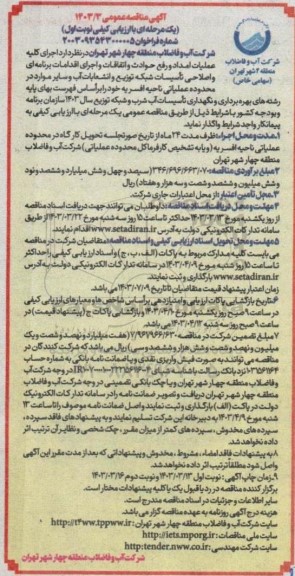 آگهی مناقصه عمومی ۱۴۰۳/۳
(یک مرحله ای با ارزیابی کیفی نوبت اول)
شماره فراخوان ۲۰۰۳۰۹۳۵۴۳۰۰۰۰۰۵
شرکت آب و فاضلاب
منطقه ۴ شهر تهران
(سهامی خاص)
شرکت آب و فاضلاب منطقه چهار شهر تهران در نظر دارد اجرای کلیه
عملیات امداد و رفع حوادث و اتفاقات و اجرای اقدامات برنامه ای
و اصلاحی تأسیسات شبکه توزیع و انشعابات آب و سایر موارد در
محدوده عملیاتی ناحیه افسریه خود را بر اساس فهرست بهای پایه
رشته های بهره برداری و نگهداری تأسیسات آب شرب و شبکه توزیع سال ۱۴۰۳ سازمان برنامه
و بودجه کشور با شرایط ذیل از طریق مناقصه عمومی یک مرحله ای با ارزیابی کیفی به
پیمانکار واجد شرایط واگذار نماید.
۱.مدت و محل اجرا: ظرف مدت ۲۴ ماه از تاریخ صورتجلسه تحویل کارگاه در محدوده
عملیاتی ناحیه افسریه (و یا به تشخیص کارفرما کل محدوده عملیاتی) شرکت آب و فاضلاب
منطقه چهار شهر تهران
۲.مبلغ برآوردی مناقصه: ۳۴۶/۶۹۶/۶۶۳/۰۷۰ (سیصد و چهل و شش میلیارد و ششصد و نود
و شش میلیون و ششصد و شصت و سه هزار و هفتاد) ریال
۳.محل تأمین اعتبار: از محل اعتبارات جاری شرکت.
۴.مهلت و محل دریافت اسناد مناقصه: داوطلبان می توانند جهت دریافت اسناد مناقصه
از روز یکشنبه مورخ ۱۴۰۳/۳/۱۳ حداکثر تا ساعت ۱۵ روز سه شنبه مورخ ۱۴۰۳/۰۳/۲۲ از طریق
سامانه تدارکات الکترونیکی دولت به آدرس www.setadiran.ir اقدام نمایند.
۵.مهلت و محل تحویل اسناد ارزیابی کیفی و اسناد مناقصه: متقاضیان شرکت در مناقصه
می بایست کلیه مدارک مربوط به پاکات (الف، ب، ج) و اسناد ارزیابی کیفی را حداکثر
تا ساعت ۱۵ روز شنبه مورخ ۱۴۰۳/۰۴/۰۹ در سامانه تدارکات الکترونیکی دولت به آدرس
www.setadiran.ir بارگذاری و ثبت نمایند.
زمان اعتبار پیشنهاد قیمت متقاضیان تا تاریخ ۱۴۰۳/۰۷/۰۹ می باشد.
۶.تاریخ بازگشایی پاکات ارزیابی و امتیازدهی بر اساس شاخص ها و معیارهای ارزیابی کیفی
در ساعت ۹ صبح روز یکشنبه مورخ ۱۴۰۳/۴/۱۰ و بازگشایی پاکات ج (پیشنهاد قیمت) در
ساعت ۹ صبح روز سه شنبه ۱۴۰۳/۴/۱۲ می باشد.
۷.مبلغ تضمین شرکت در مناقصه ۷/۹۶۶/۹۶۶/۶۳۰ (هفت میلیارد و نهصد و شصت و یک
می باشد که شرکت کنندگان در
مناقصه می توانند به صورت فیش واریزی نقدی و یا ضمانت نامه بانکی به شماره حساب
در وجه شرکت آب
و فاضلاب منطقه چهار شهر تهران و یا چک بانکی تضمینی در وجه شرکت آب و فاضلاب
منطقه چهار شهر تهران دریافت و تصویر ضمانت نامه را در سامانه تدارکات الکترونیک
دولت در پاکت (الف) بارگذاری و ثبت نمایند و اصل ضمانت نامه موصوف را تا ساعت ۱۳
شنبه مورخ ۱۴۰۳/۴/۹ به دبیرخانه این شرکت تسلیم نمایند و به پیشنهادهای فاقد سپرده،
سپرده های مخدوش، سپرده های کمتر از میزان مقرر، چک شخصی و نظایر آن ترتیب اثر
داده نخواهد شد.
۸.به پیشنهادات فاقد امضاء، مشروط، مخدوش و پیشنهاداتی که بعد از مدت مقرر این آگهی
واصل شود مطلقا ترتیب اثر داده نخواهد شد.
۹.زمان چاپ آگهی: نوبت اول ۱۴۰۳/۰۳/۱۳ و نوبت دوم ۱۴۰۳/۰۳/۱۶
برگزار کننده مناقصه در رد یا قبول یک یا کلیه پیشنهادات مختار است.
سایر اطلاعات و جزئیات در اسناد مناقصه مندرج است.
هزینه درج آگهی روزنامه به عهده مناقصه گزار می باشد.
سایت شرکت آب و فاضلاب منطقه چهار شهر تهران: http://t4ww.tpww.ir
سایت ملی مناقصات: http://iets.mporg.ir
سایت شرکت مهندسی: http:tender.nww.co.ir
شرکت آب و فاضلاب منطقه چهار شهر تهران